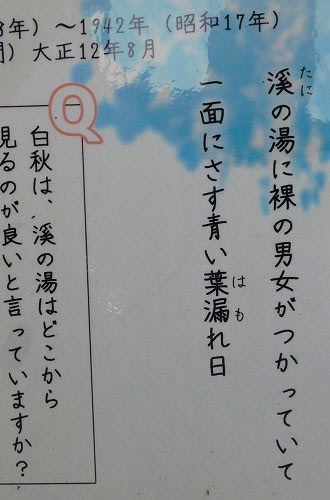 8年）～1942年（昭和17年）
）大正12年8月
溪の湯に裸の男女がつかっていて
たに
一面にさす青い葉漏れ日
はも
Q
白秋は、溪の湯はどこから
見るのが良いと言っていますか？